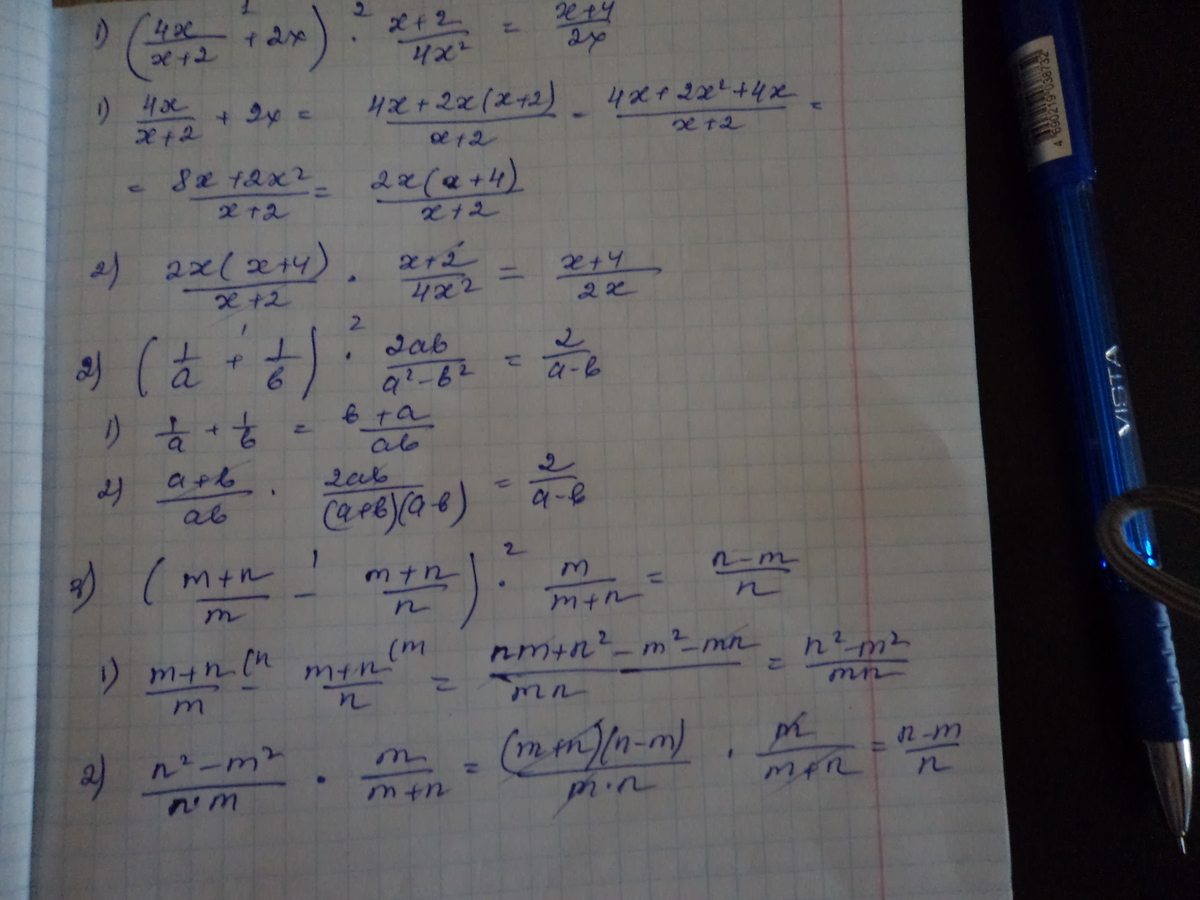 1) (4x/(x+2) + 2x) · (x+2)/(4x²) = (x+4)/(2x)
1) 4x/(x+2) + 2x = (4x+2x(x+2))/(x+2) = (4x+2x²+4x)/(x+2) =
= (8x+2x²)/(x+2) = 2x(x+4)/(x+2)
2) 2x(x+4)/(x+2) · (x+2)/(4x²) = (x+4)/(2x)
2) (1/a + 1/в) · 2aв/(a²-в²) = 2/(a-в)
1) 1/a + 1/в = (в+a)/(aв)
2) (a+в)/(aв) · 2aв/((a+в)(a-в)) = 2/(a-в)
3) ((m+n)/m - (m+n)/n) · m/(m+n) = (n-m)/n
1) (m+n)/m (n - (m+n)/n (m = (nm+n²-m²-mn)/(mn) = (n²-m²)/(mn)
2) (n²-m²)/(n·m) · m/(m+n) = ((m+n)(n-m))/(m·n) · m/(m+n) = (n-m)/n
4 690219 038732
VISTA